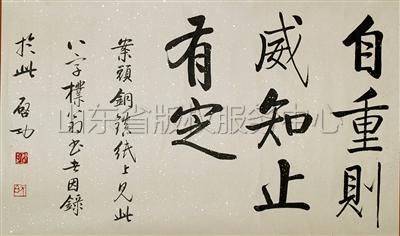 自重則
威知止
有定
案頭銅鎮紙上見此
八字樸翁书者因錄
於此 啓功
山东省版权服务中心